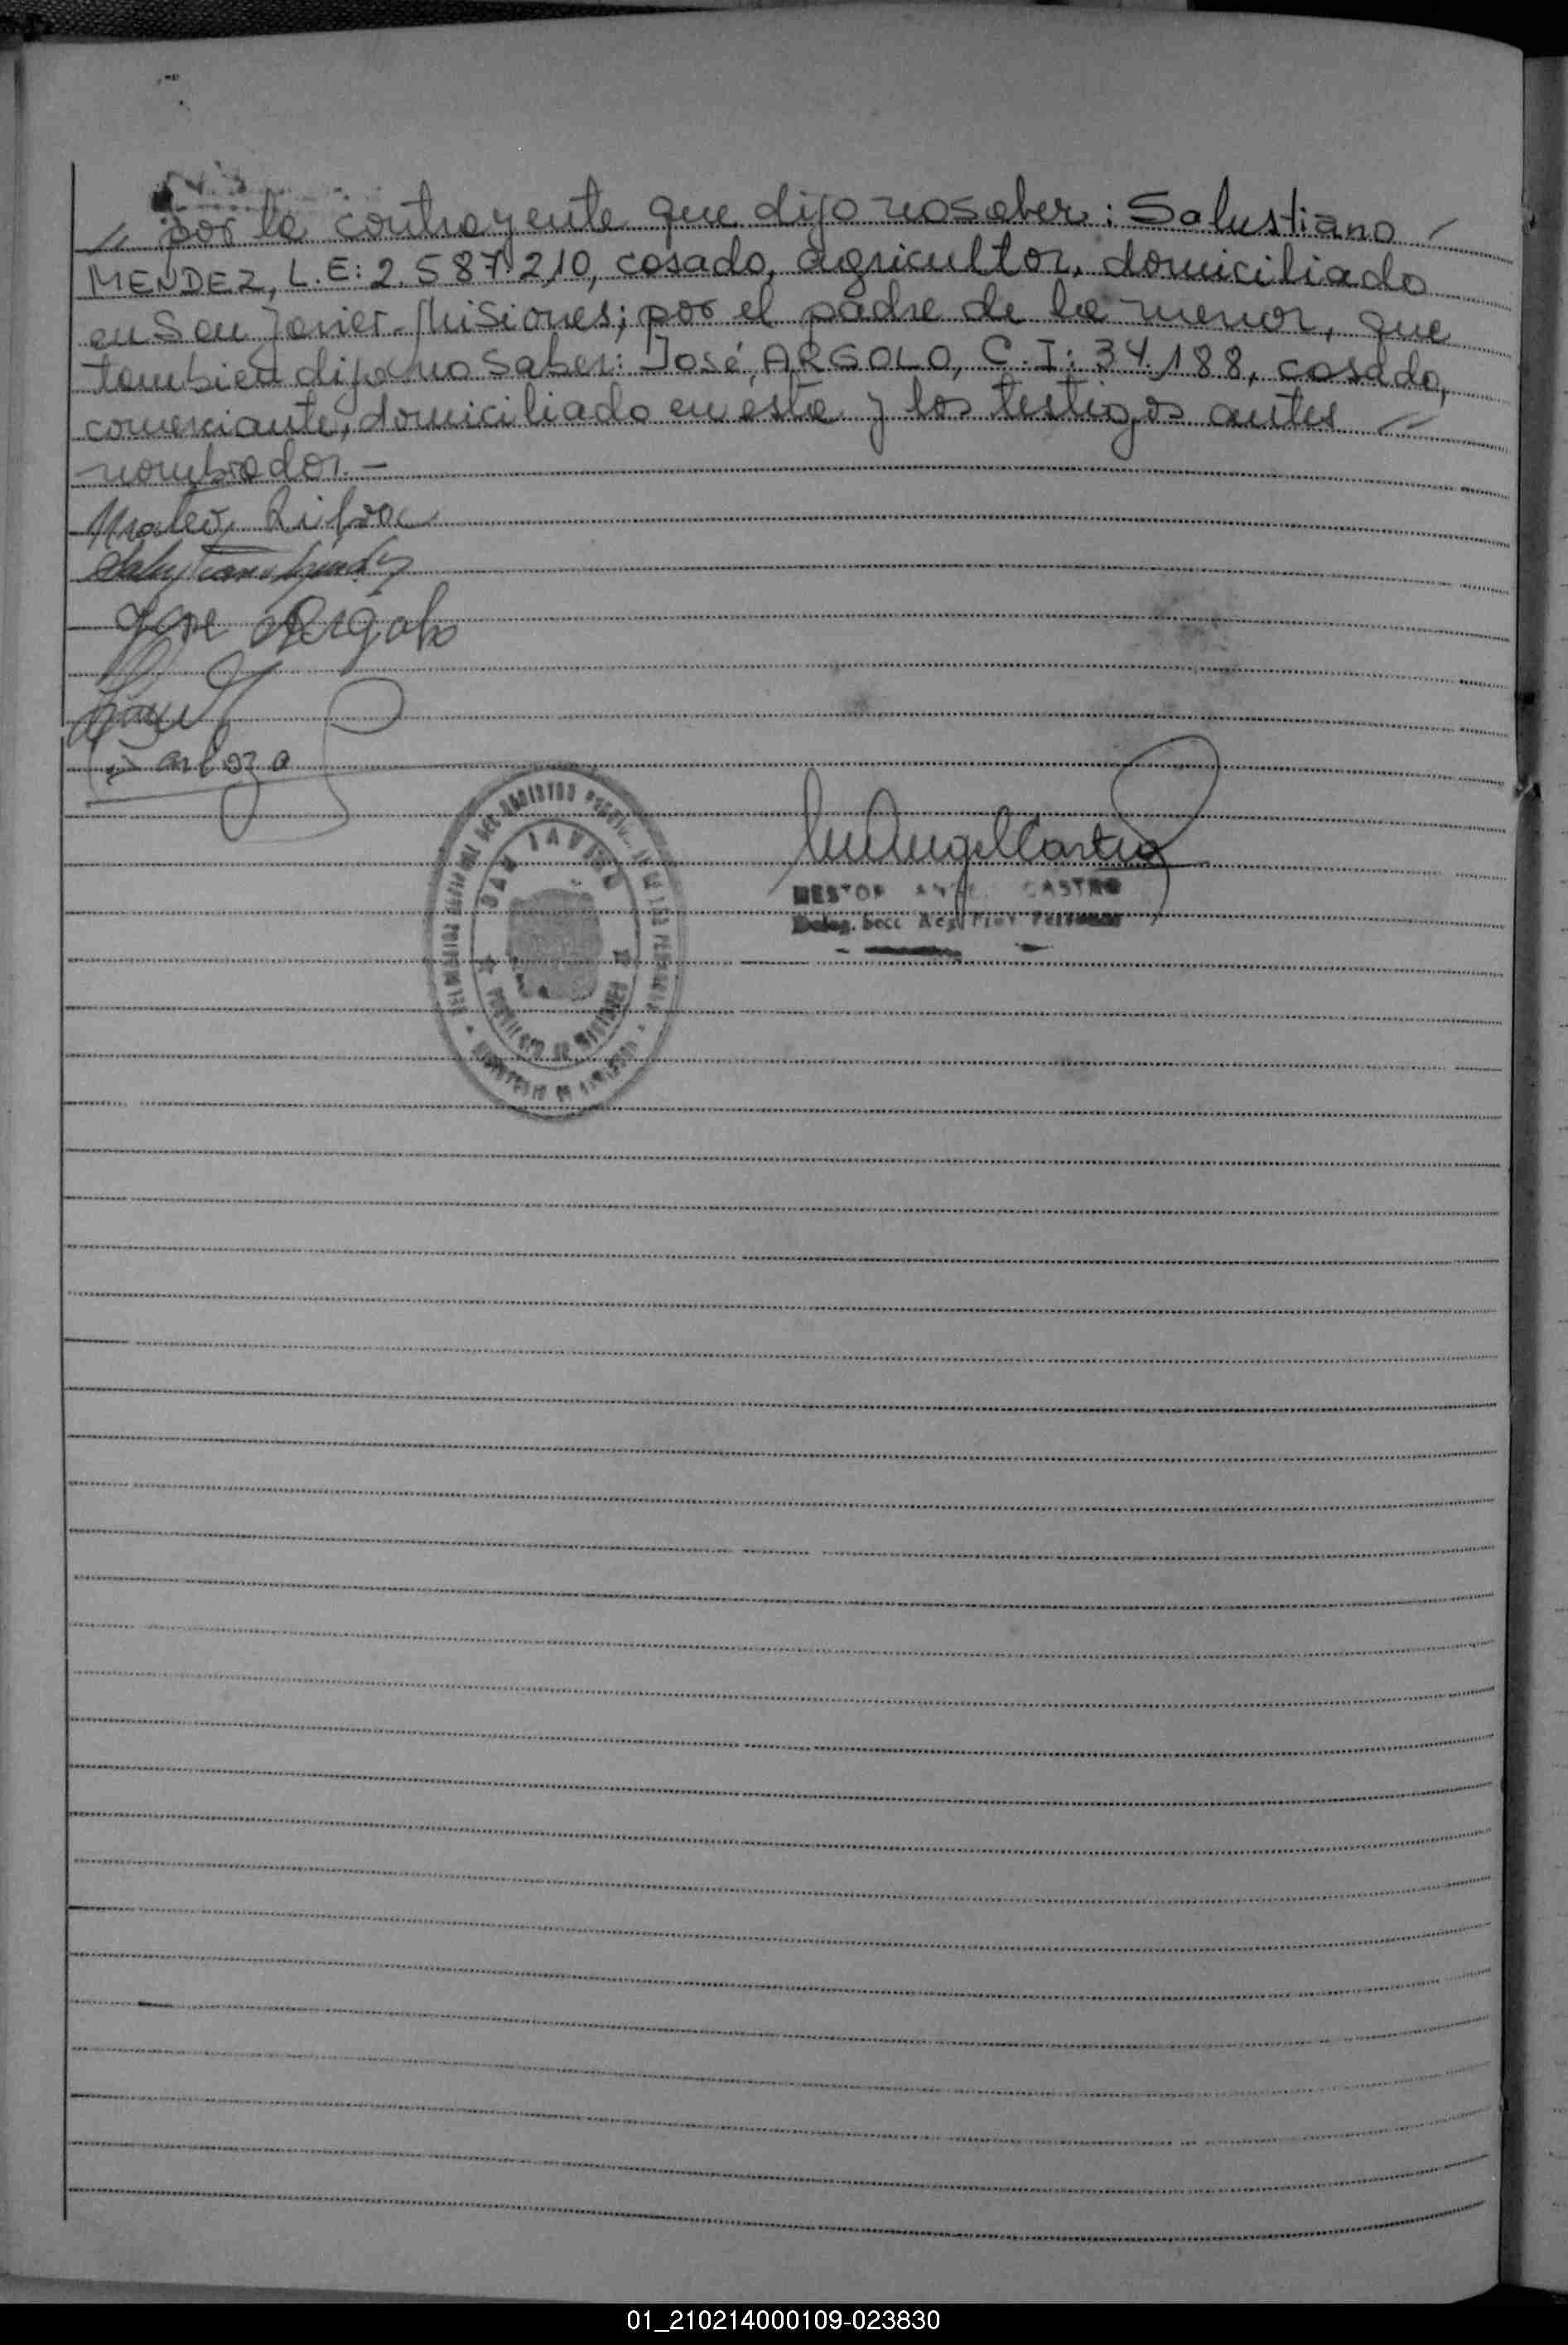 // por la contrayente que dijo no saber: Salustiano /
MENDEZ, L.E: 2.587.210, casado, agricultor, domiciliado
en San Javier-Misiones; por el padre de la menor, que
tambien dijo no saber: José, ARGOLO, C.I: 34.188, casado,
comerciante, domiciliado en esta y los testigos antes //
nombrados.-
Jose Argolo
Barboza
SAN JAVIER
NESTOR ANGEL CASTRO
Deleg. Secc Reg. Prov Personas
01_210214000109-023830